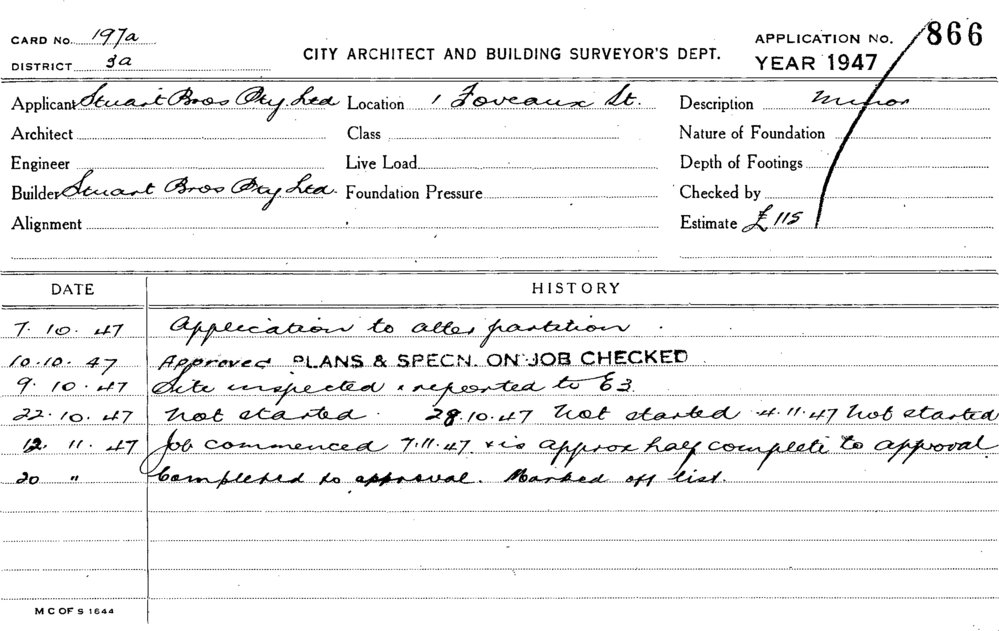 CARD No. 197a
DISTRICT 3a
CITY ARCHITECT AND BUILDING SURVEYOR'S DEPT.
APPLICATION No. 866
YEAR 1947
Applicant Stuart Bros Pty Ltd Location 1 Foveaux St. Description Minor
Architect Class Nature of Foundation
Engineer Live Load Depth of Footings
Builder Stuart Bros Pty Ltd. Foundation Pressure Checked by
Alignment Estimate £115
DATE HISTORY
7.10.47 Application to alter partition.
10.10.47 Approved PLANS & SPECN. ON JOB CHECKED
9.10.47 Site inspected & reported to E3
22.10.47 Not started. 28.10.47 Not started 4.11.47 Not started
12.11.47 Job commenced 7.11.47 & is approx half complete to approval
20 " Completed to approval. Marked off list.
M C OF S 1644